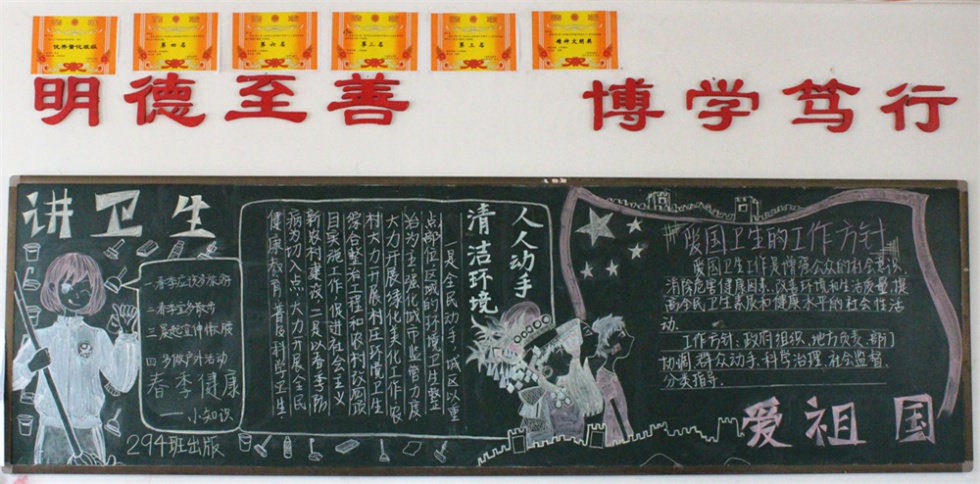 优秀量化班级
第四名
第六名
第二名
第三名
精神文明奖
明德至善
博学笃行
讲卫生
一春季应快多旅游
二春季宜多散步
三晨起宜伸懒腰
四多做户外活动
春季健康
——小知识
294班出版
人人动手
清洁环境
一是全民动手,城区以重
点部位区域的环境卫生整
治为主,强化城市监管力度,
大力开展绿化美化工作,农
村大力开展村庄环境卫生
综合整治工程和农村改厕项
目实施工作,促进社会主义
新农村建设,二是以春季防
病为切入点,大力开展全民
健康教育,普及科学卫生
爱国卫生的工作方针
爱国卫生工作是增强公众的社会意识,
消除危害健康因素,改善环境和生活质量,提
高全民卫生素质和健康水平的社会性活
动.
工作方针:政府组织、地方负责、部门
协调、群众动手、科学治理、社会监督、
分类指导.
爱祖国